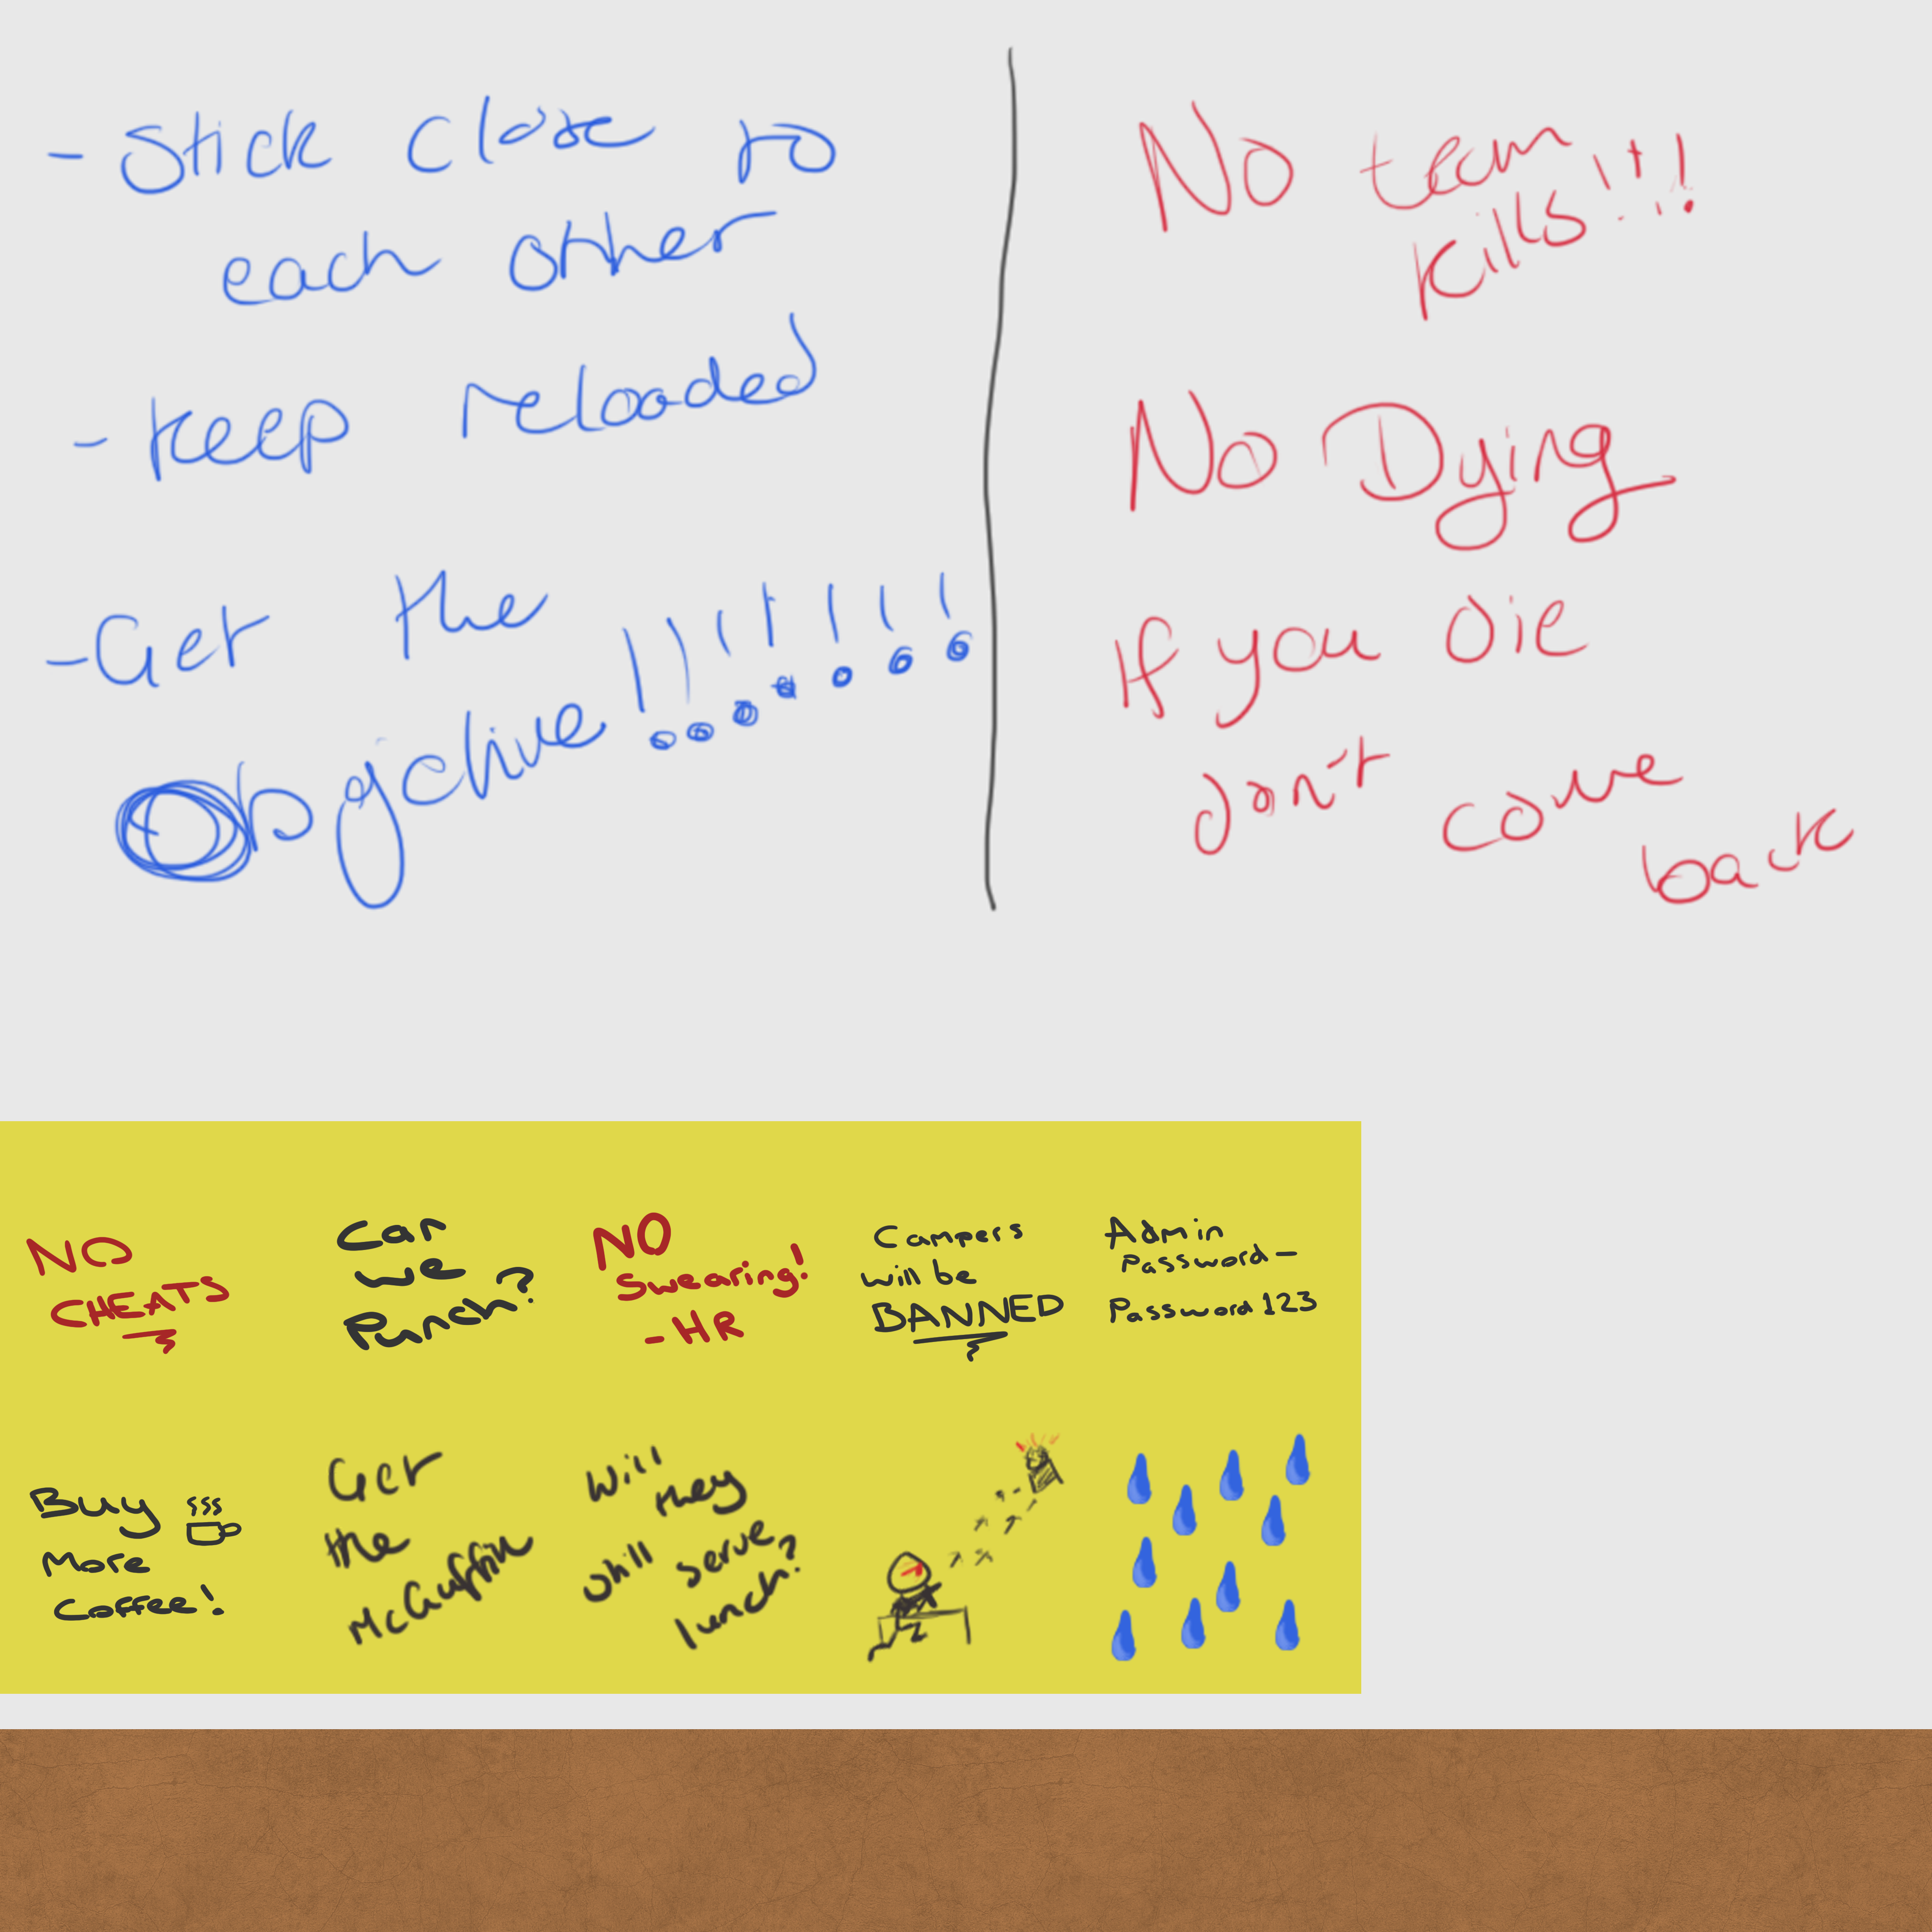 - Stick close to
each other
- Keep reloaded
- Get the
Objective!!!!!!!
No team
kills!!!
No Dying
If you Die
don't come
back
NO
CHEATS
Can
we
Punch?
NO
swearing!
- HR
Campers
will be
BANNED
Admin
Password -
Password123
Buy
More
Coffee!
Get
the
McGuffin
Will
they
still serve
lunch?